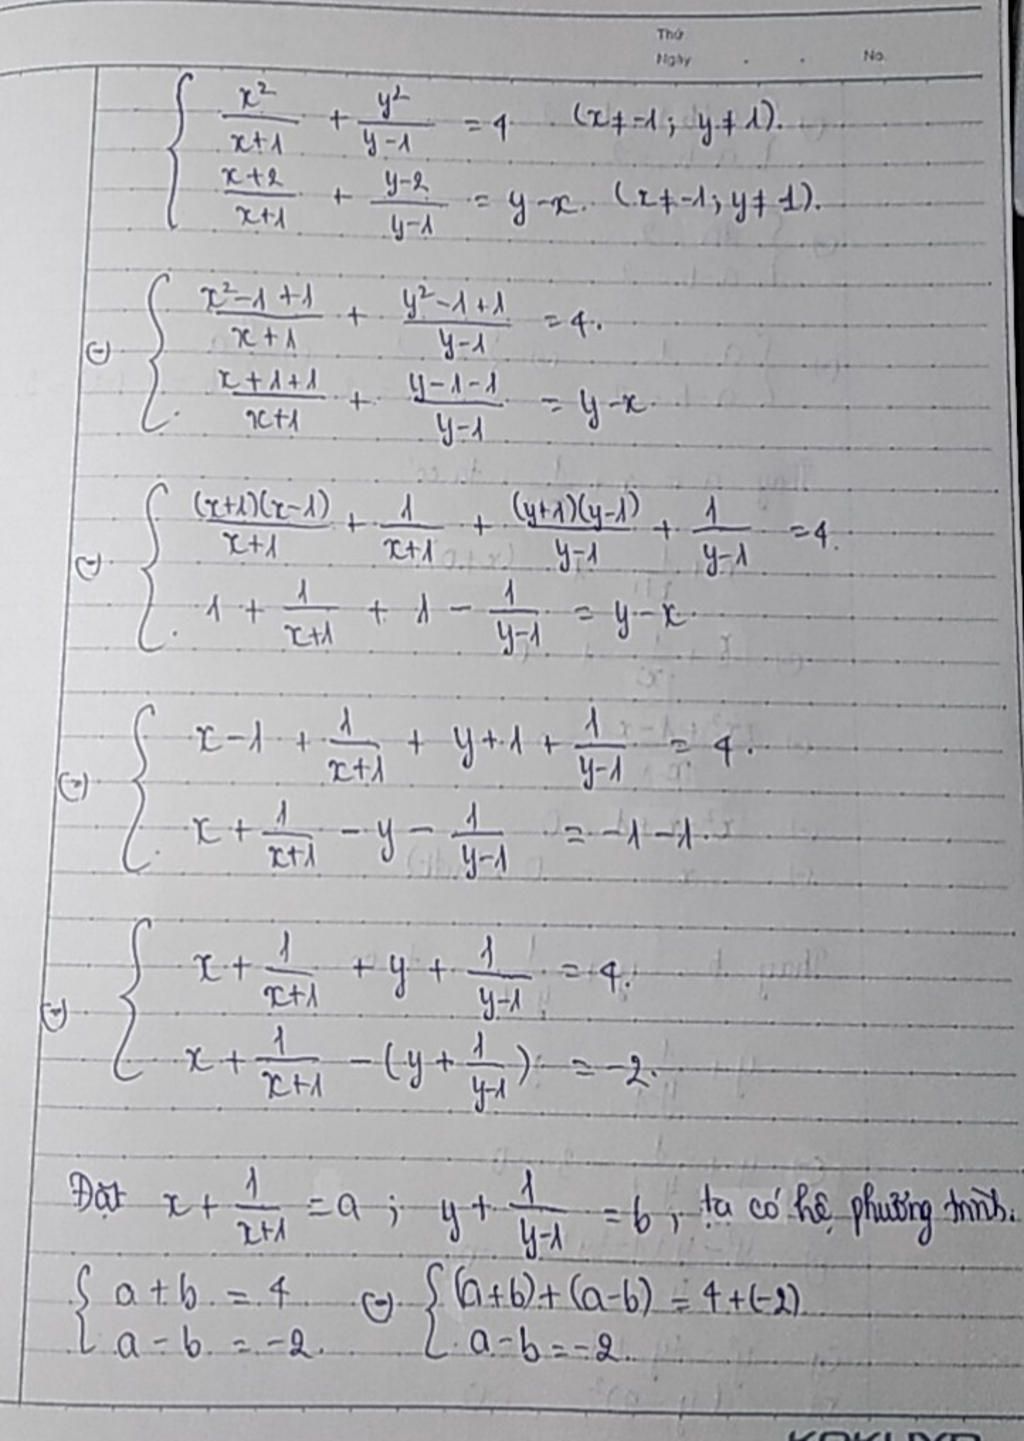 Thứ
Ngày . . No.
{ x²/(x+1) + y²/(y-1) = 4 (x ≠ -1; y ≠ 1).
{ (x+2)/(x+1) + (y-2)/(y-1) = y-x. (x ≠ -1; y ≠ 1).
(=) { (x²-1+1)/(x+1) + (y²-1+1)/(y-1) = 4.
{ (x+1+1)/(x+1) + (y-1-1)/(y-1) = y-x
(=) { (x+1)(x-1)/(x+1) + 1/(x+1) + (y+1)(y-1)/(y-1) + 1/(y-1) = 4.
{ 1 + 1/(x+1) + 1 - 1/(y-1) = y-x
(=) { x-1 + 1/(x+1) + y+1 + 1/(y-1) = 4.
{ x + 1/(x+1) - y - 1/(y-1) = -1-1.
(=) { x + 1/(x+1) + y + 1/(y-1) = 4.
{ x + 1/(x+1) - (y + 1/(y-1)) = -2.
Đặt x + 1/(x+1) = a; y + 1/(y-1) = b, ta có hệ phương trình.
{ a+b = 4 (=) { (a+b)+(a-b) = 4+(-2)
{ a-b = -2. { a-b = -2.